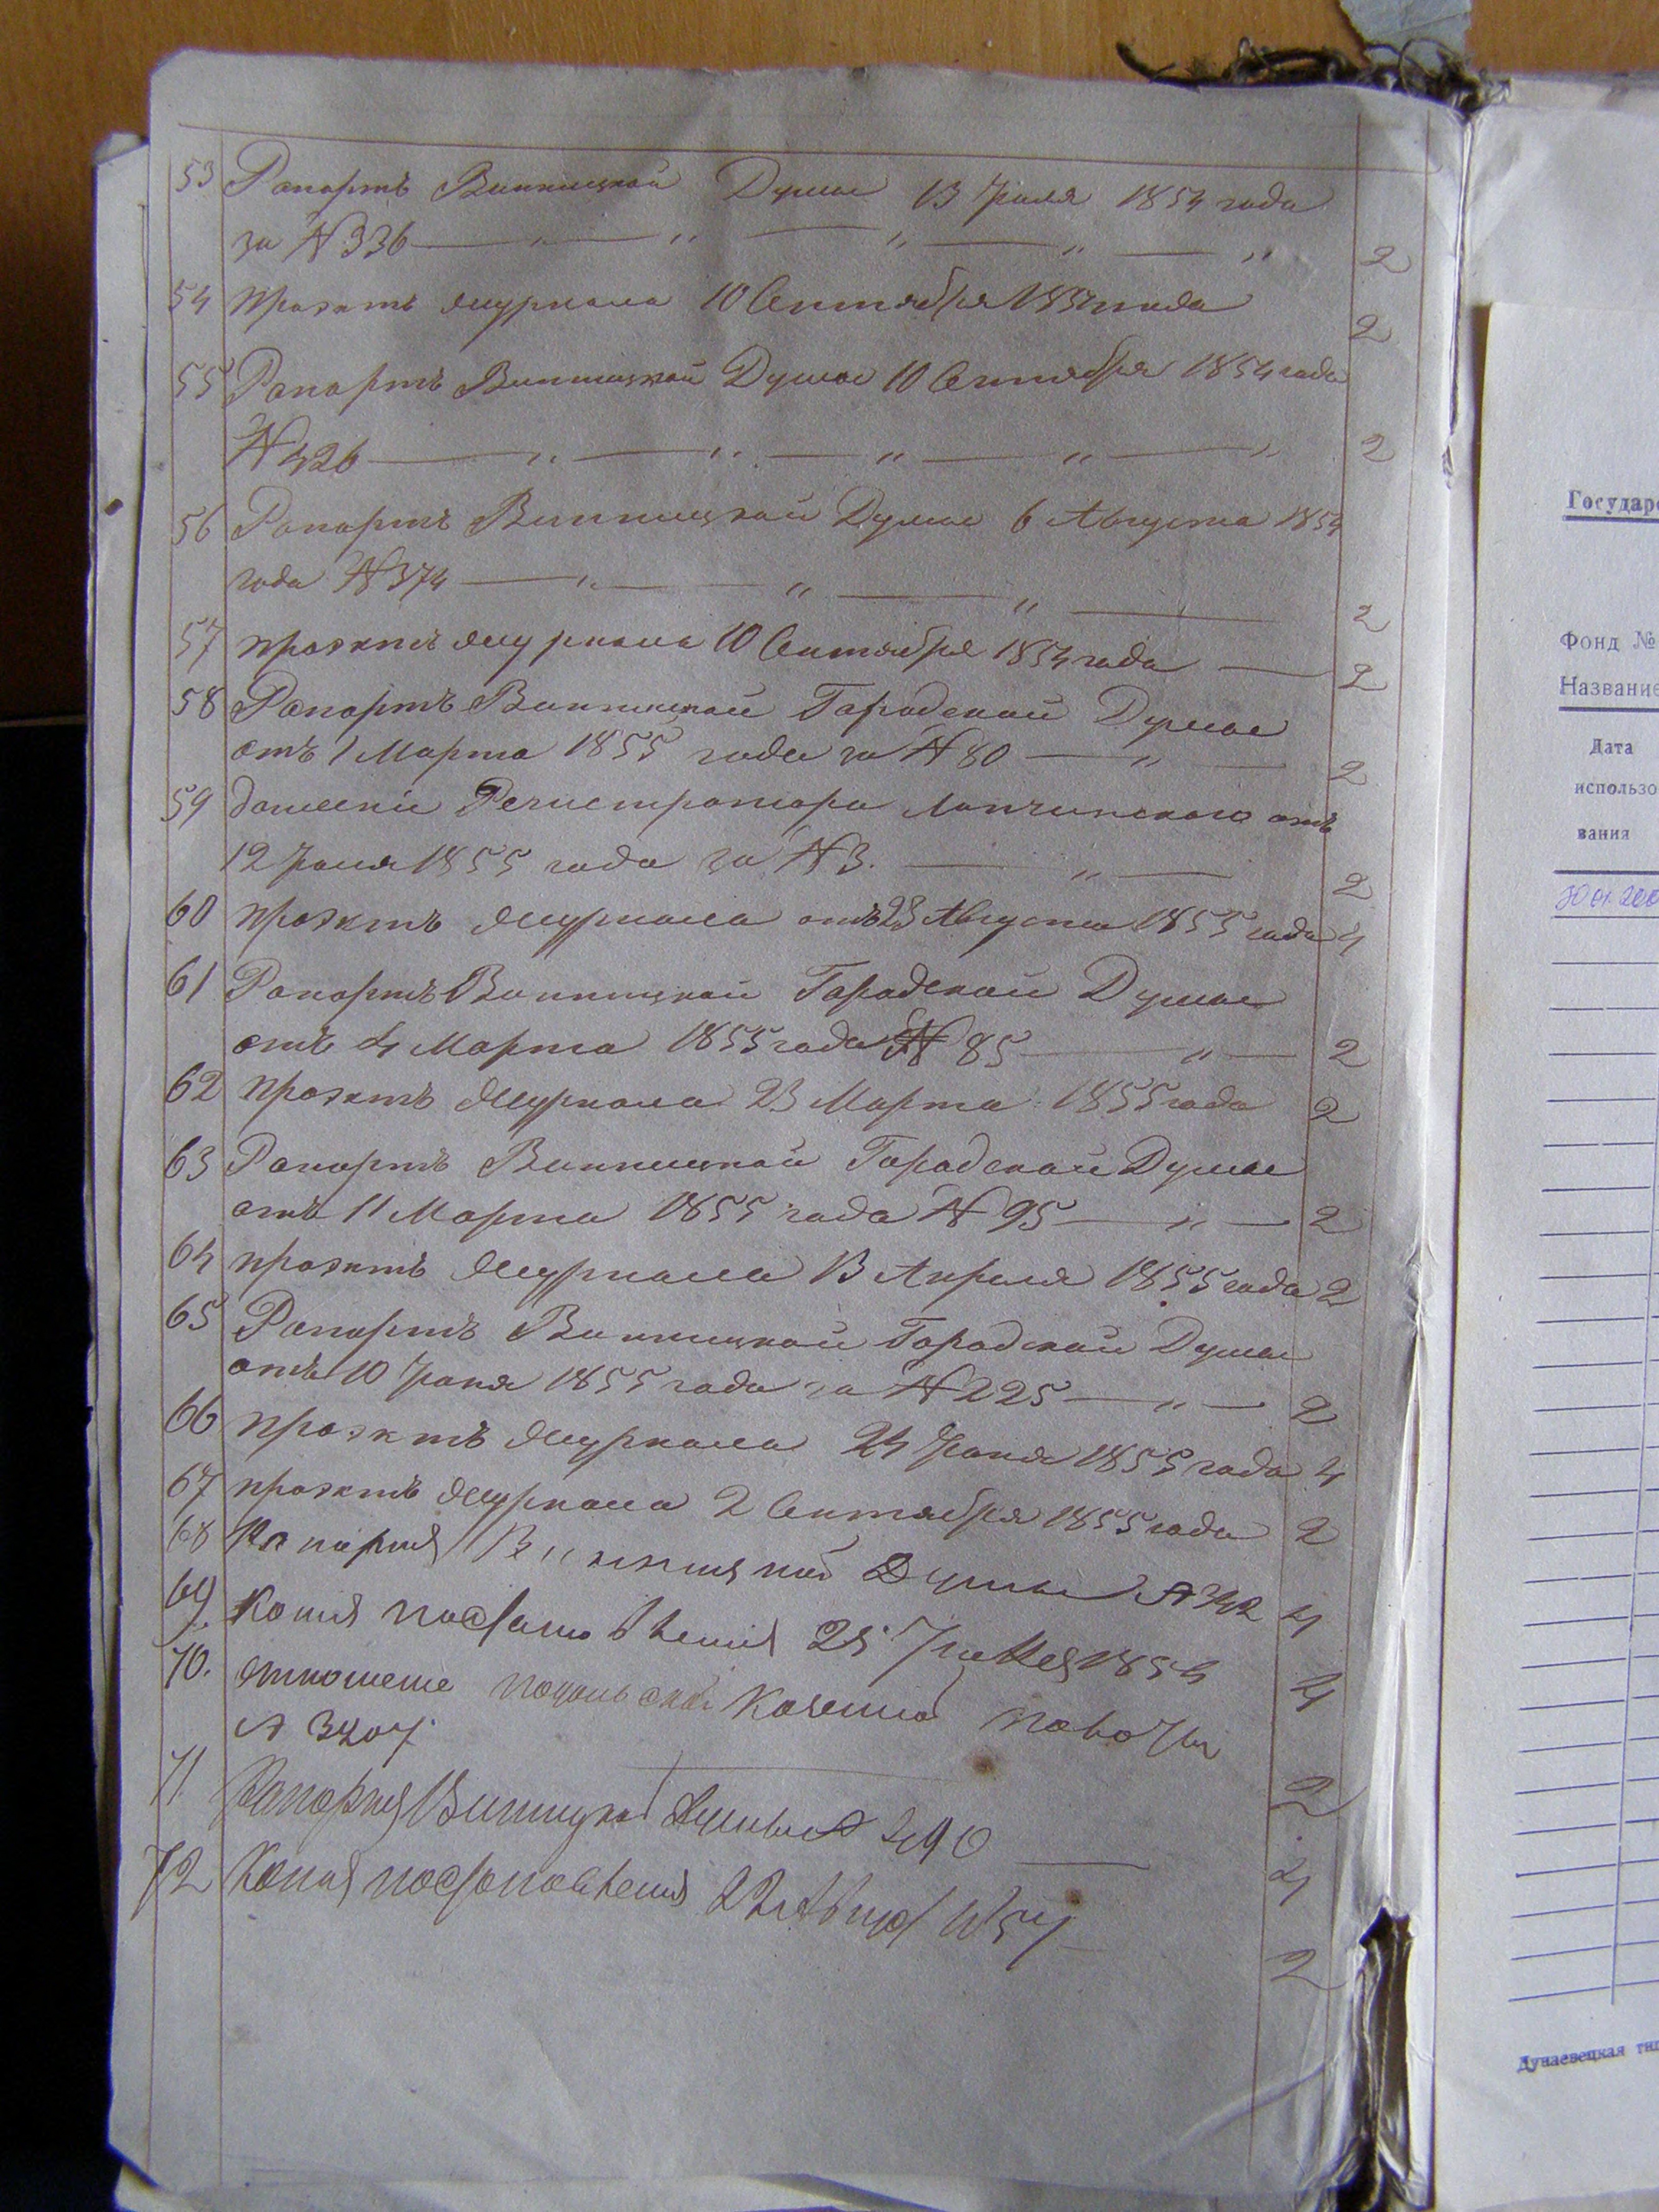 53 Рапортъ Винницкой Думы 13 Іюля 1854 года
за № 336 — " — " — " — " — " 2
54 проэктъ журнала 10 Сентября 1854 года 2
55 Рапортъ Винницкой Думы 10 Сентября 1854 года
№ 426 — " — " — " — " — " 2
56 Рапортъ Винницкой Думы 6 Августа 1854
года № 374 — " — " — " — 2
57 проэктъ журнала 10 Сентября 1854 года — 2
58 Рапортъ Винницкой Городской Думы
отъ 1 Марта 1855 года за № 80 — " — 2
59 донесеніе Регистратора отъ
12 1855 года за № 3. — " — 2
60 проэктъ журнала отъ 23 Августа 1855 года 4
61 Рапортъ Винницкой Городской Думы
отъ 4 Марта 1855 года № 85 — " — 2
62 проэктъ журнала 23 Марта 1855 года 2
63 Рапортъ Винницкой Городской Думы
отъ 11 Марта 1855 года № 95 — " — 2
64 проэктъ журнала 13 Апреля 1855 года 2
65 Рапортъ Винницкой Городской Думы
отъ 10 Іюня 1855 года за № 225 — " — 2
66 проэктъ журнала 24 Іюня 1855 года 4
67 проэктъ журнала 2 Сентября 1855 года 2
68 Рапортъ Винницкой Думы № 4
69. Копія постановленія 25 1854 4
70. отношеніе подольской Казенной палаты
№ 3407. 2
71 Рапортъ Винницкой Думы № 290 — 4
72 Копія постановленія 22 Август 1854 2
Государ
Фонд №
Название
Дата
использо
вания
Дунаевецкая тип